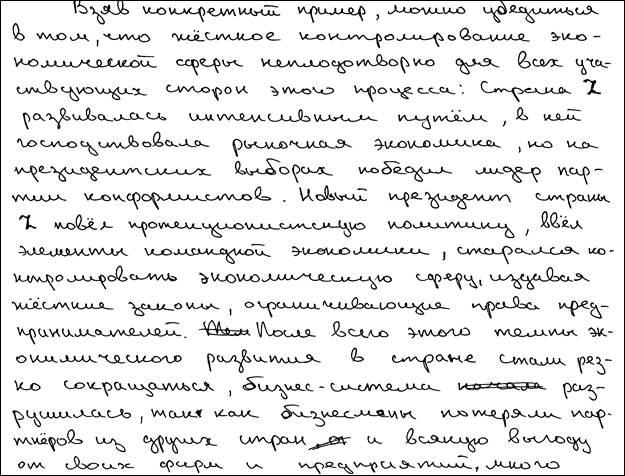 Взяв конкретный пример, можно убедиться
в том, что жёсткое контролирование эко-
номической сферы неплодотворно для всех уча-
ствующих сторон этого процесса: Страна Z
развивалась интенсивным путём, в ней
господствовала рыночная экономика, но на
президентских выборах победил лидер пар-
тии конформистов. Новый президент страны
Z повёл протекционистскую политику, ввёл
элементы командной экономики, старался ко-
нтролировать экономическую сферу, издавая
жёсткие законы, ограничивающие права пред-
принимателей. После всего этого темпы эк-
ономического развития в стране стали рез-
ко сокращаться, бизнес-система раз-
рушилась, так как бизнесмены потеряли пар-
тнёров из других стран и всякую выгоду
от своих фирм и предприятий, много